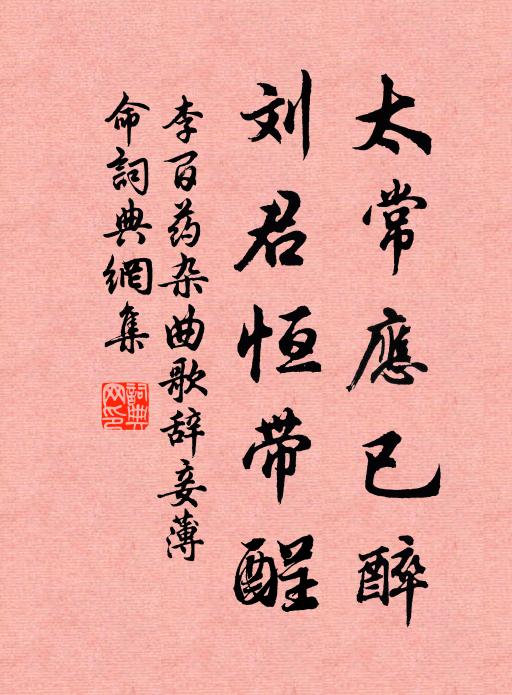 太常應已醉
刘君恒带醒
李百药杂曲歌辞妾薄
命詞典網集
詞典
网印